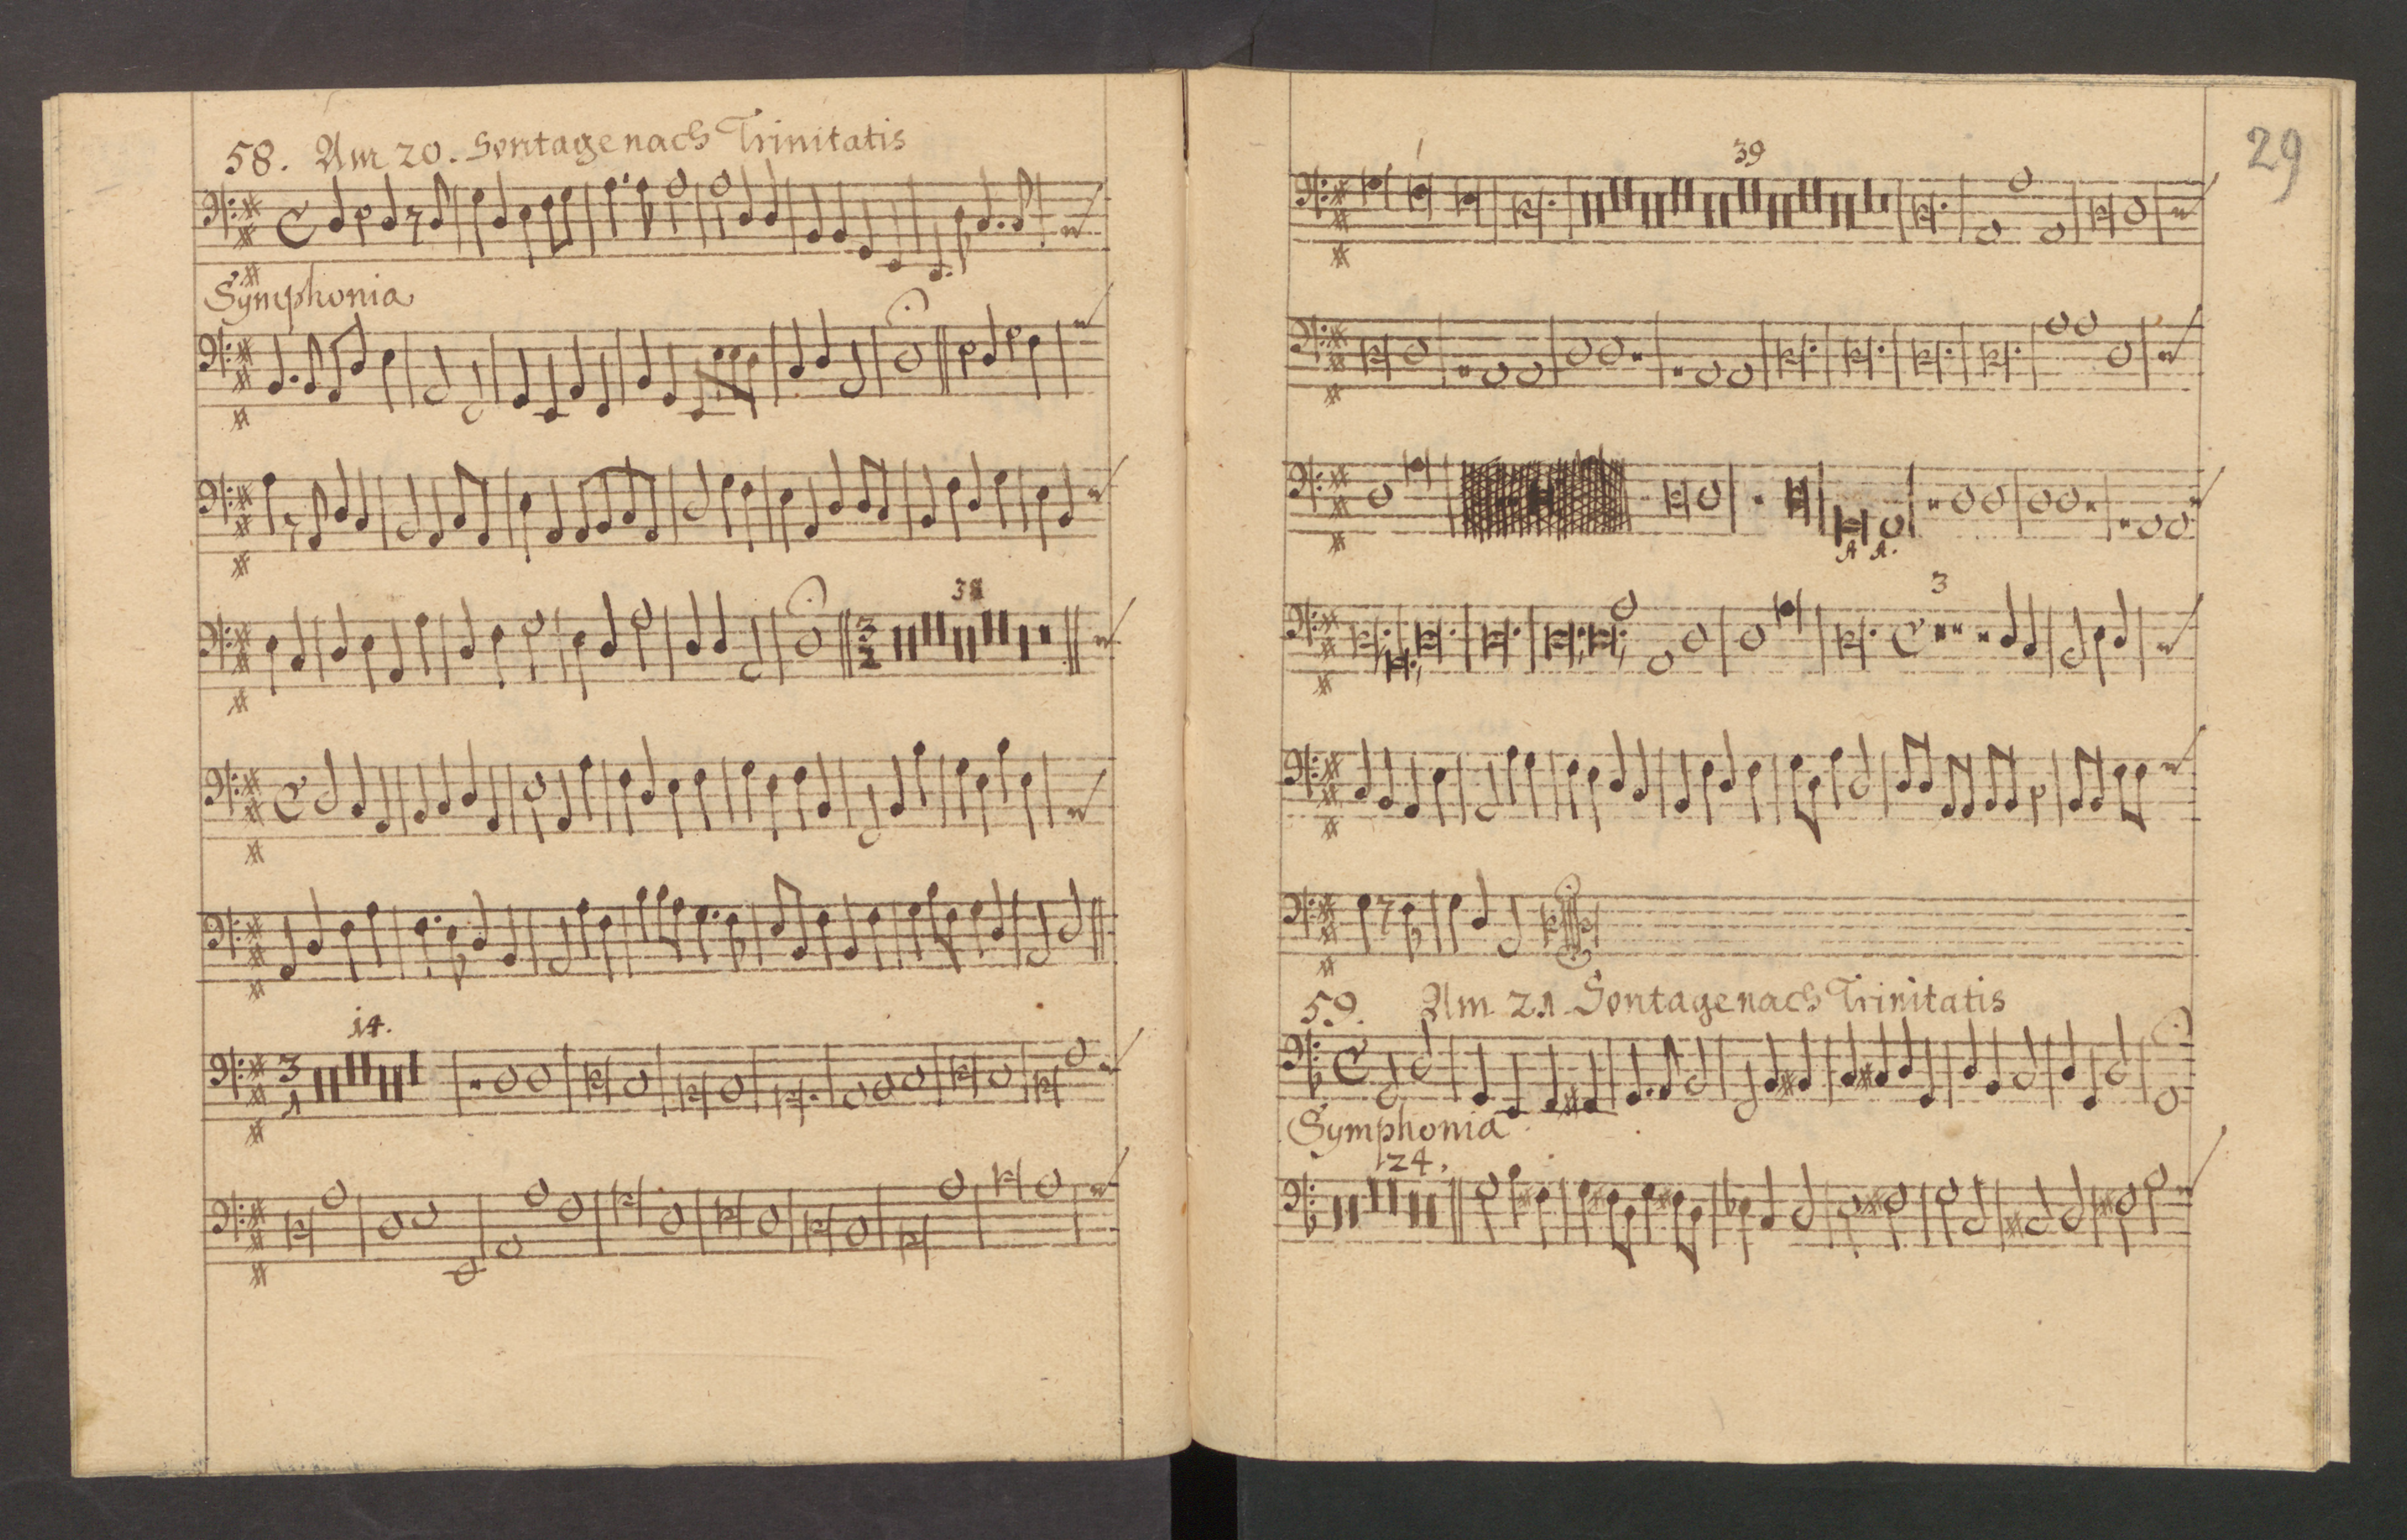 58. Am 20. Sontage nach Trinitatis
Symphonia
3
2
14.
3
1
29
39
A A.
3
59. Am 21 Sontage nach Trinitatis
Symphonia
24.